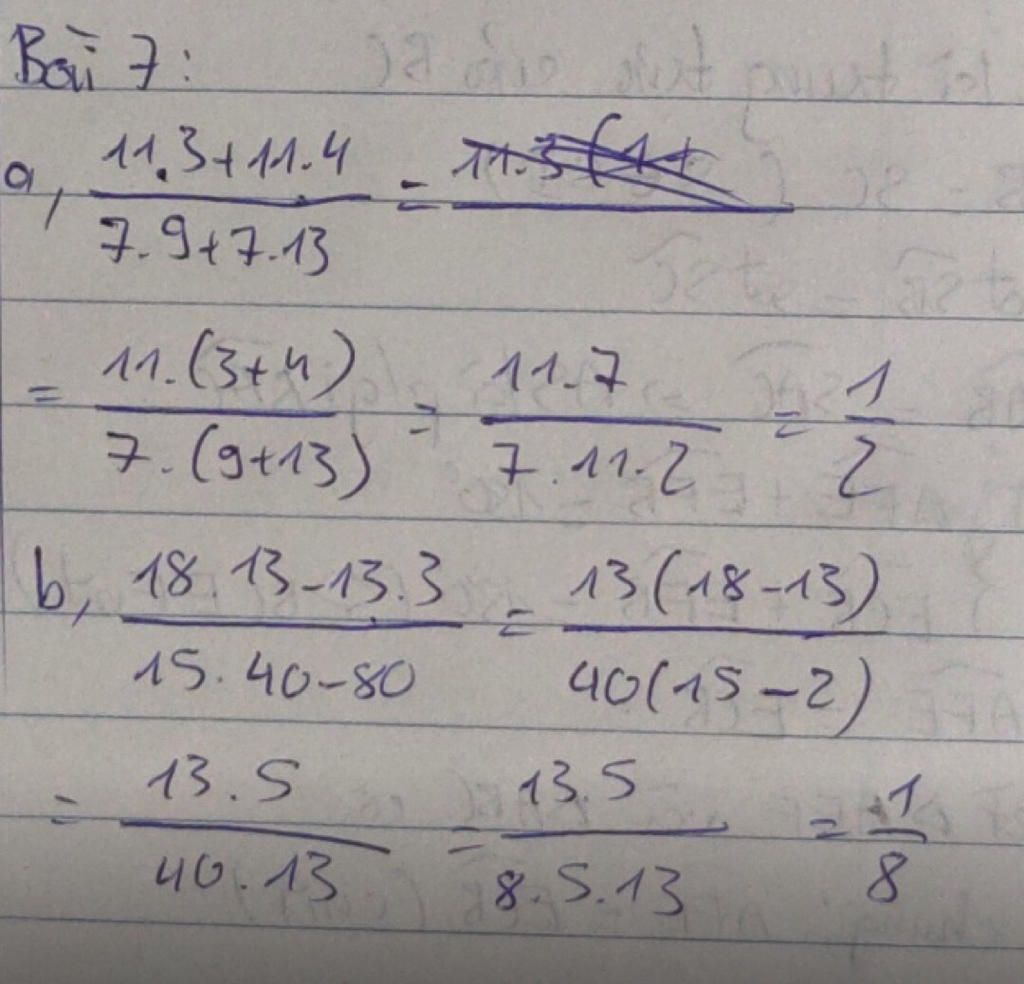 Bài 7:
a, \frac{11.3+11.4}{7.9+7.13} =
= \frac{11.(3+4)}{7.(9+13)} = \frac{11.7}{7.11.2} = \frac{1}{2}
b, \frac{18.13-13.3}{15.40-80} = \frac{13(18-13)}{40(15-2)}
= \frac{13.5}{40.13} = \frac{13.5}{8.5.13} = \frac{1}{8}